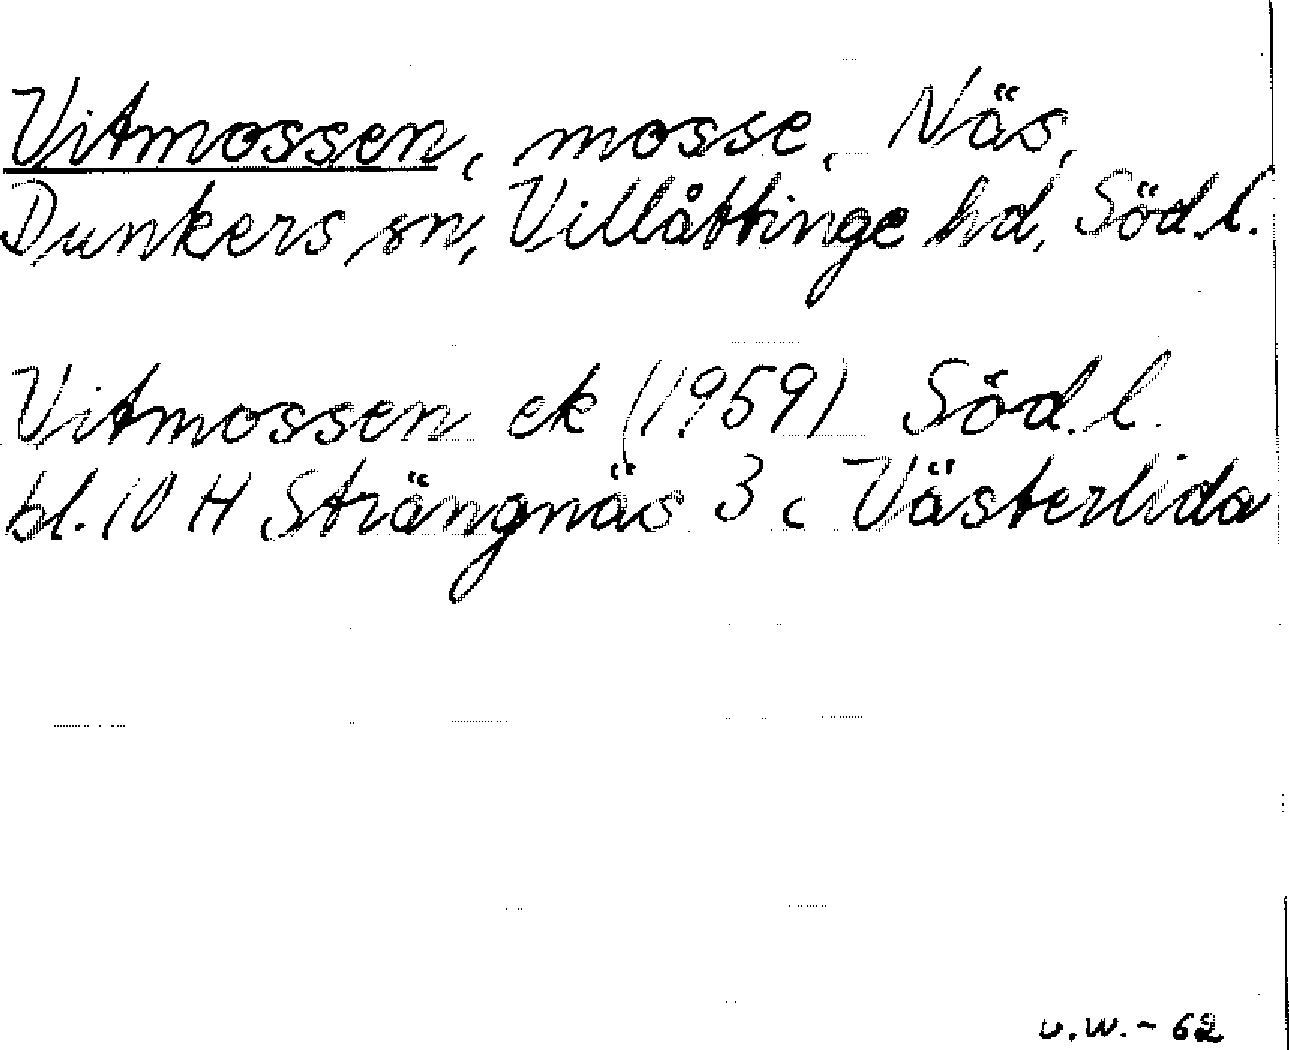 Vitmossen, mosse, Näs,
Dunkers sn, Villåttinge hd, Söd.l.
Vitmossen ek (1959) Söd.l.
bl. 10 H Strängnäs 3 c Västerlida
v.w.-62